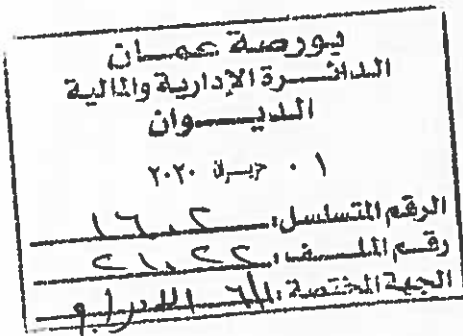 بورصة عمان
الدائرة الإدارية والمالية
الديوان
٠١ حزيران ٢٠٢٠
الرقم المتسلسل: ١٦٠٢
رقم الملف: ٢١٠٢٢
الجهة المختصة: